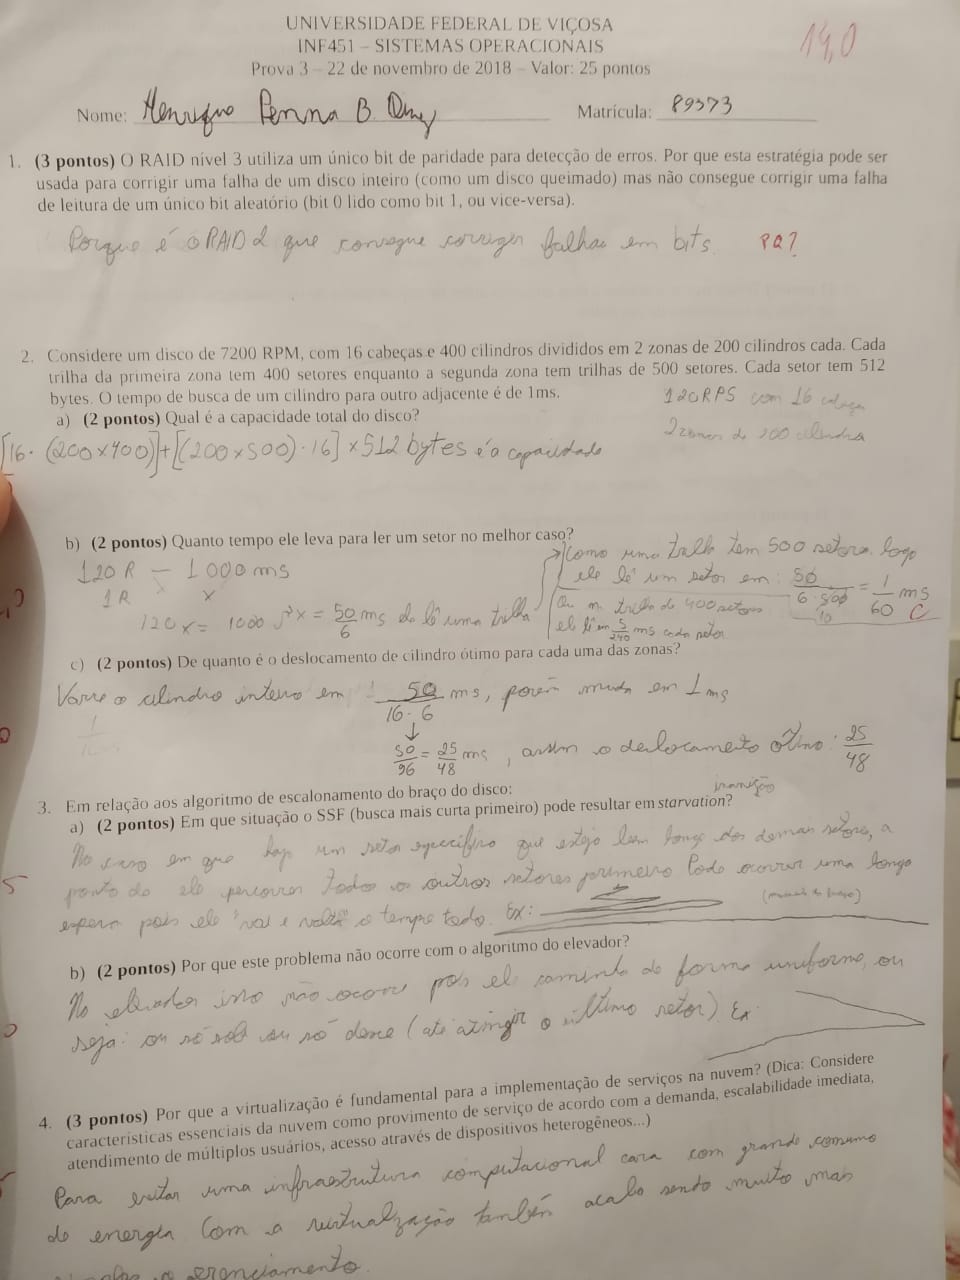 UNIVERSIDADE FEDERAL DE VIÇOSA
INF451 – SISTEMAS OPERACIONAIS
14,0
Prova 3 – 22 de novembro de 2018 – Valor: 25 pontos
Nome: Henrique Penna B.
Matrícula: 89373
1. (3 pontos) O RAID nível 3 utiliza um único bit de paridade para detecção de erros. Por que esta estratégia pode ser
usada para corrigir uma falha de um disco inteiro (como um disco queimado) mas não consegue corrigir uma falha
de leitura de um único bit aleatório (bit 0 lido como bit 1, ou vice-versa).
Porque é o RAID 2 que consegue corrigir falhas em bits. PQ?
2. Considere um disco de 7200 RPM, com 16 cabeças e 400 cilindros divididos em 2 zonas de 200 cilindros cada. Cada
trilha da primeira zona tem 400 setores enquanto a segunda zona tem trilhas de 500 setores. Cada setor tem 512
bytes. O tempo de busca de um cilindro para outro adjacente é de 1ms.
120RPS com 16 cabeças
a) (2 pontos) Qual é a capacidade total do disco?
2 zonas de 200 cilindros
[16 · (200x400)]+[(200x500) · 16] x 512 bytes é a capacidade
b) (2 pontos) Quanto tempo ele leva para ler um setor no melhor caso?
120R — 1000 ms
1R x
120x = 1000 x = 50/6 ms ele lê uma trilha
Como uma trilha tem 500 setores, logo
ele lê um setor em: 50/6·500 = 1/60 ms C
10
Ou na trilha de 400 setores
ele lê em 5/240 ms cada setor
c) (2 pontos) De quanto é o deslocamento de cilindro ótimo para cada uma das zonas?
Varre o cilindro inteiro em 50/16·6 ms, porém muda em 1 ms
50/96 = 25/48 ms, assim o deslocamento ótimo: 25/48
3. Em relação aos algoritmo de escalonamento do braço do disco:
inanição
a) (2 pontos) Em que situação o SSF (busca mais curta primeiro) pode resultar em starvation?
No caso em que haja um setor específico que esteja bem longe dos demais setores, a
ponto de ele percorrer todos os outros setores primeiro. Pode ocorrer uma longa
espera pois ele "vai e volta" o tempo todo. Ex:
b) (2 pontos) Por que este problema não ocorre com o algoritmo do elevador?
No elevador isso não ocorre pois ele caminha de forma uniforme, ou
seja: ou só sobe ou só desce (até atingir o último setor). Ex
4. (3 pontos) Por que a virtualização é fundamental para a implementação de serviços na nuvem? (Dica: Considere
características essenciais da nuvem como provimento de serviço de acordo com a demanda, escalabilidade imediata,
atendimento de múltiplos usuários, acesso através de dispositivos heterogêneos...)
Para evitar uma infraestrutura computacional cara com grande consumo
de energia. Com a virtualização também acaba sendo muito mais
o gerenciamento.